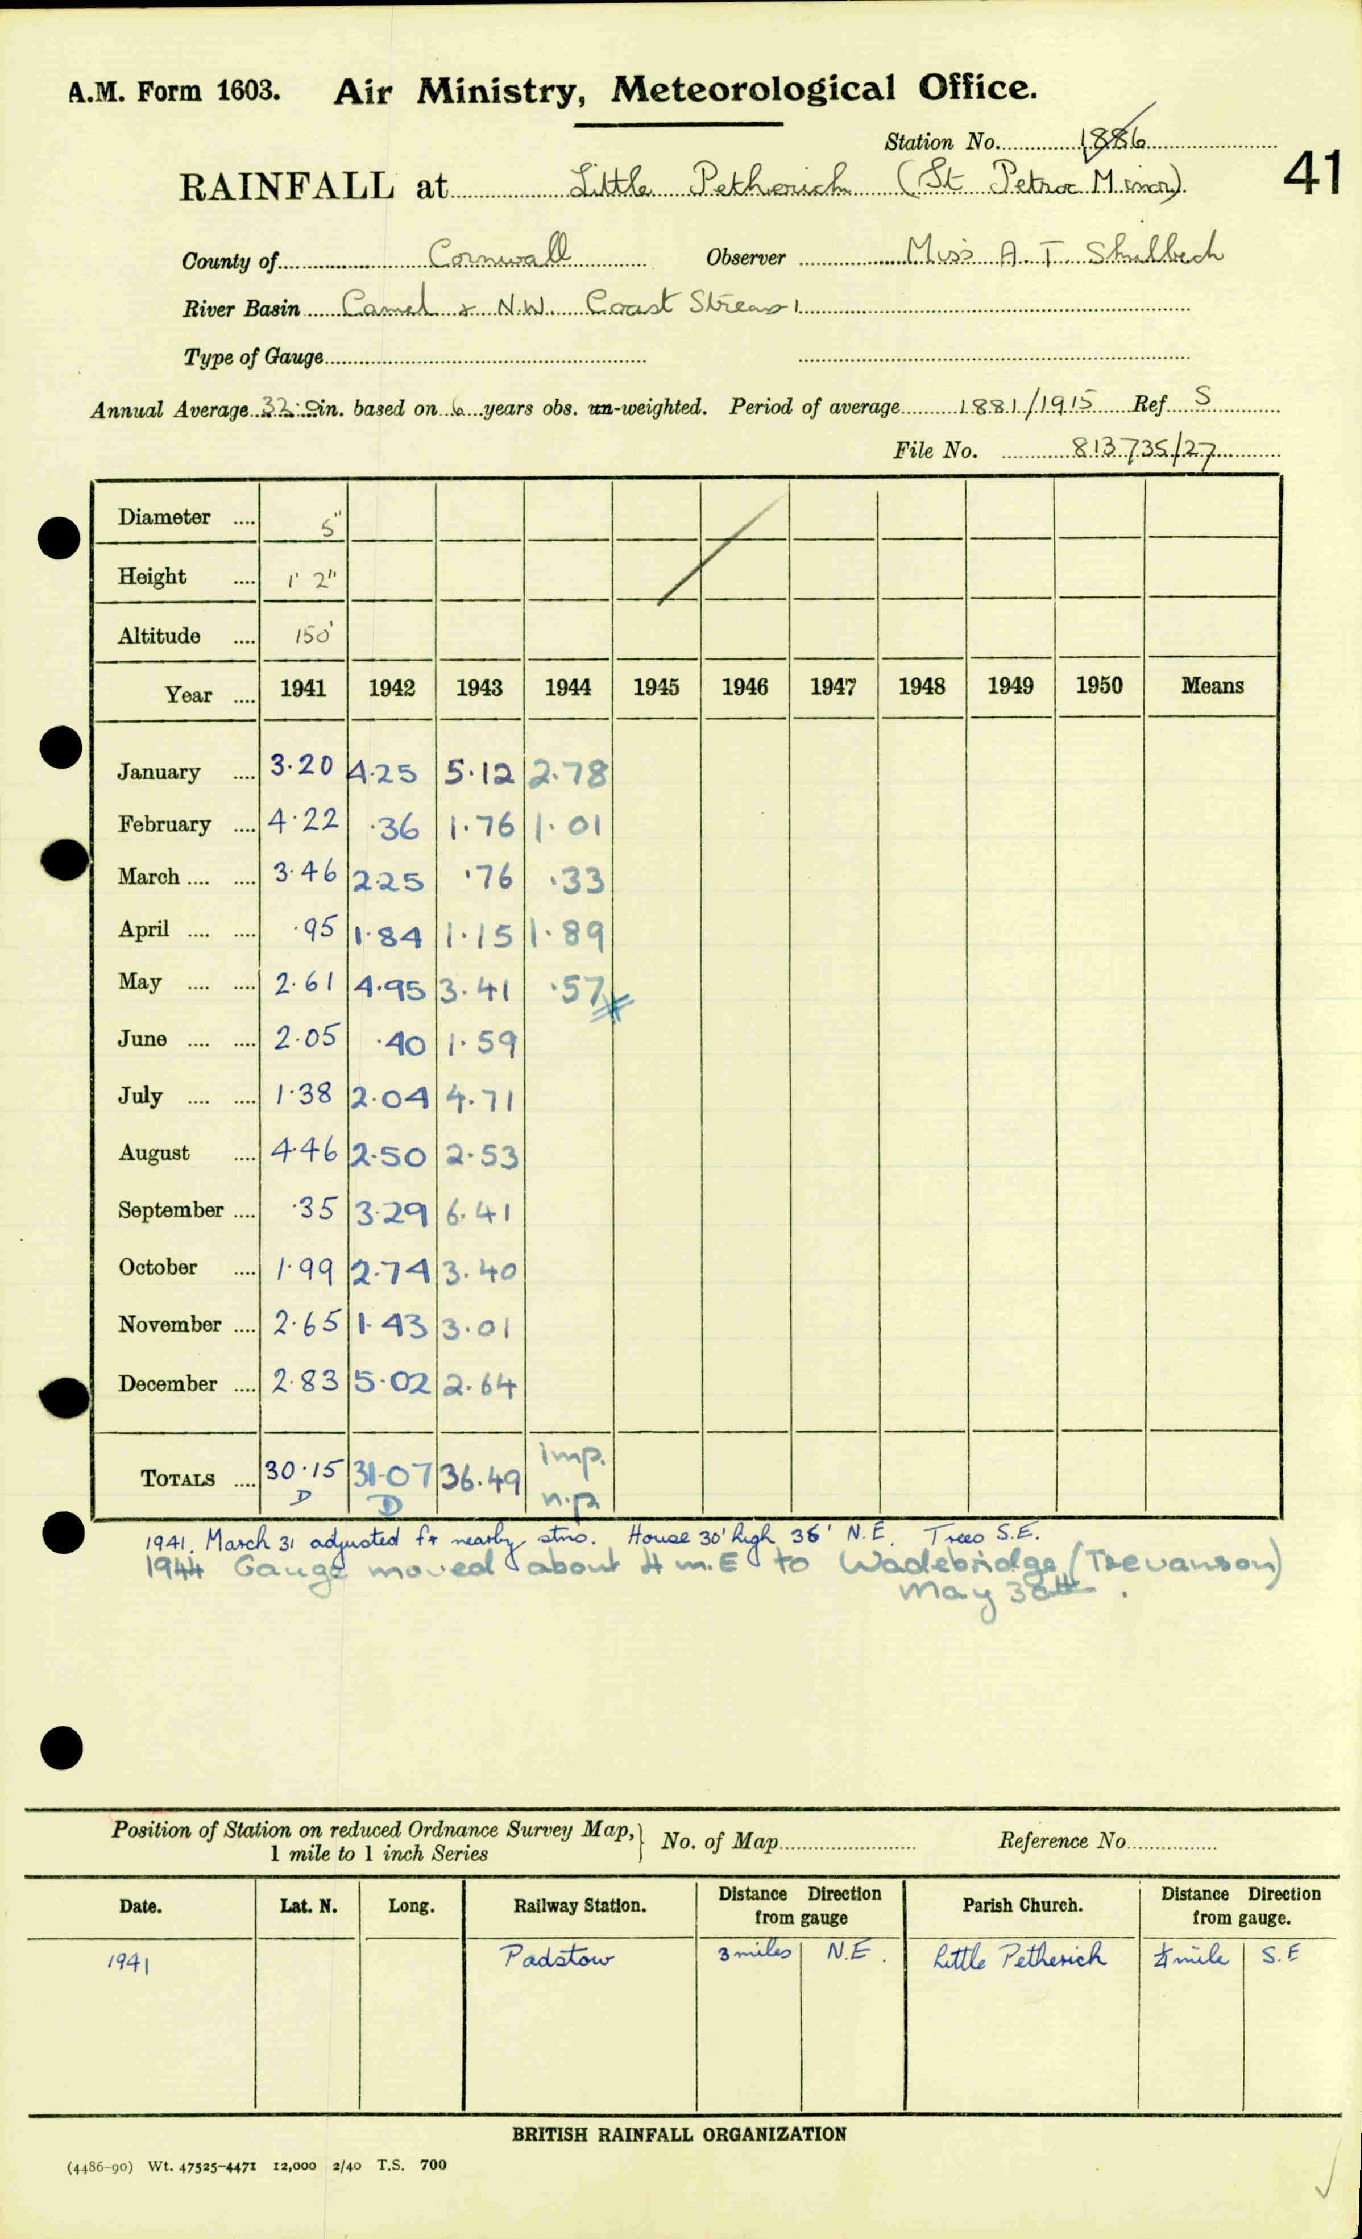 A.M. Form 1603. Air Ministry, Meteorological Office.
Station No. 1886
41
RAINFALL at Little Petherick (St Petroc Minor)
County of Cornwall Observer Miss A. T. Shilbeck
River Basin Camel & N.W. Coast Streams
Type of Gauge
Annual Average 32.0 in. based on 6 years obs. un-weighted. Period of average 1881/1915 Ref S
File No. 813735/27
Diameter .... 5"
Height .... 1' 2"
Altitude .... 150'
Year .... 1941 1942 1943 1944 1945 1946 1947 1948 1949 1950 Means
January .... 3.20 4.25 5.12 2.78
February .... 4.22 .36 1.76 1.01
March .... .... 3.46 2.25 .76 .33
April .... .... .95 1.84 1.15 1.89
May .... .... 2.61 4.95 3.41 .57
June .... .... 2.05 .40 1.59
July .... .... 1.38 2.04 4.71
August .... 4.46 2.50 2.53
September .... .35 3.29 6.41
October .... 1.99 2.74 3.40
November .... 2.65 1.43 3.01
December .... 2.83 5.02 2.64
TOTALS .... 30.15 31.07 36.49 imp.
D D n.p.
1941. March 31 adjusted fr nearby stns. House 30' high 36' N.E. Trees S.E.
1944 Gauge moved about 4 m. E to Wadebridge (Trevanson)
May 30th.
Position of Station on reduced Ordnance Survey Map,} No. of Map Reference No
1 mile to 1 inch Series
Date. Lat. N. Long. Railway Station. Distance Direction from gauge Parish Church. Distance Direction from gauge.
1941 Padstow 3 miles N.E. Little Petherick ¼ mile S.E
BRITISH RAINFALL ORGANIZATION
(4486-90) Wt. 47525-4471 12,000 2/40 T.S. 700